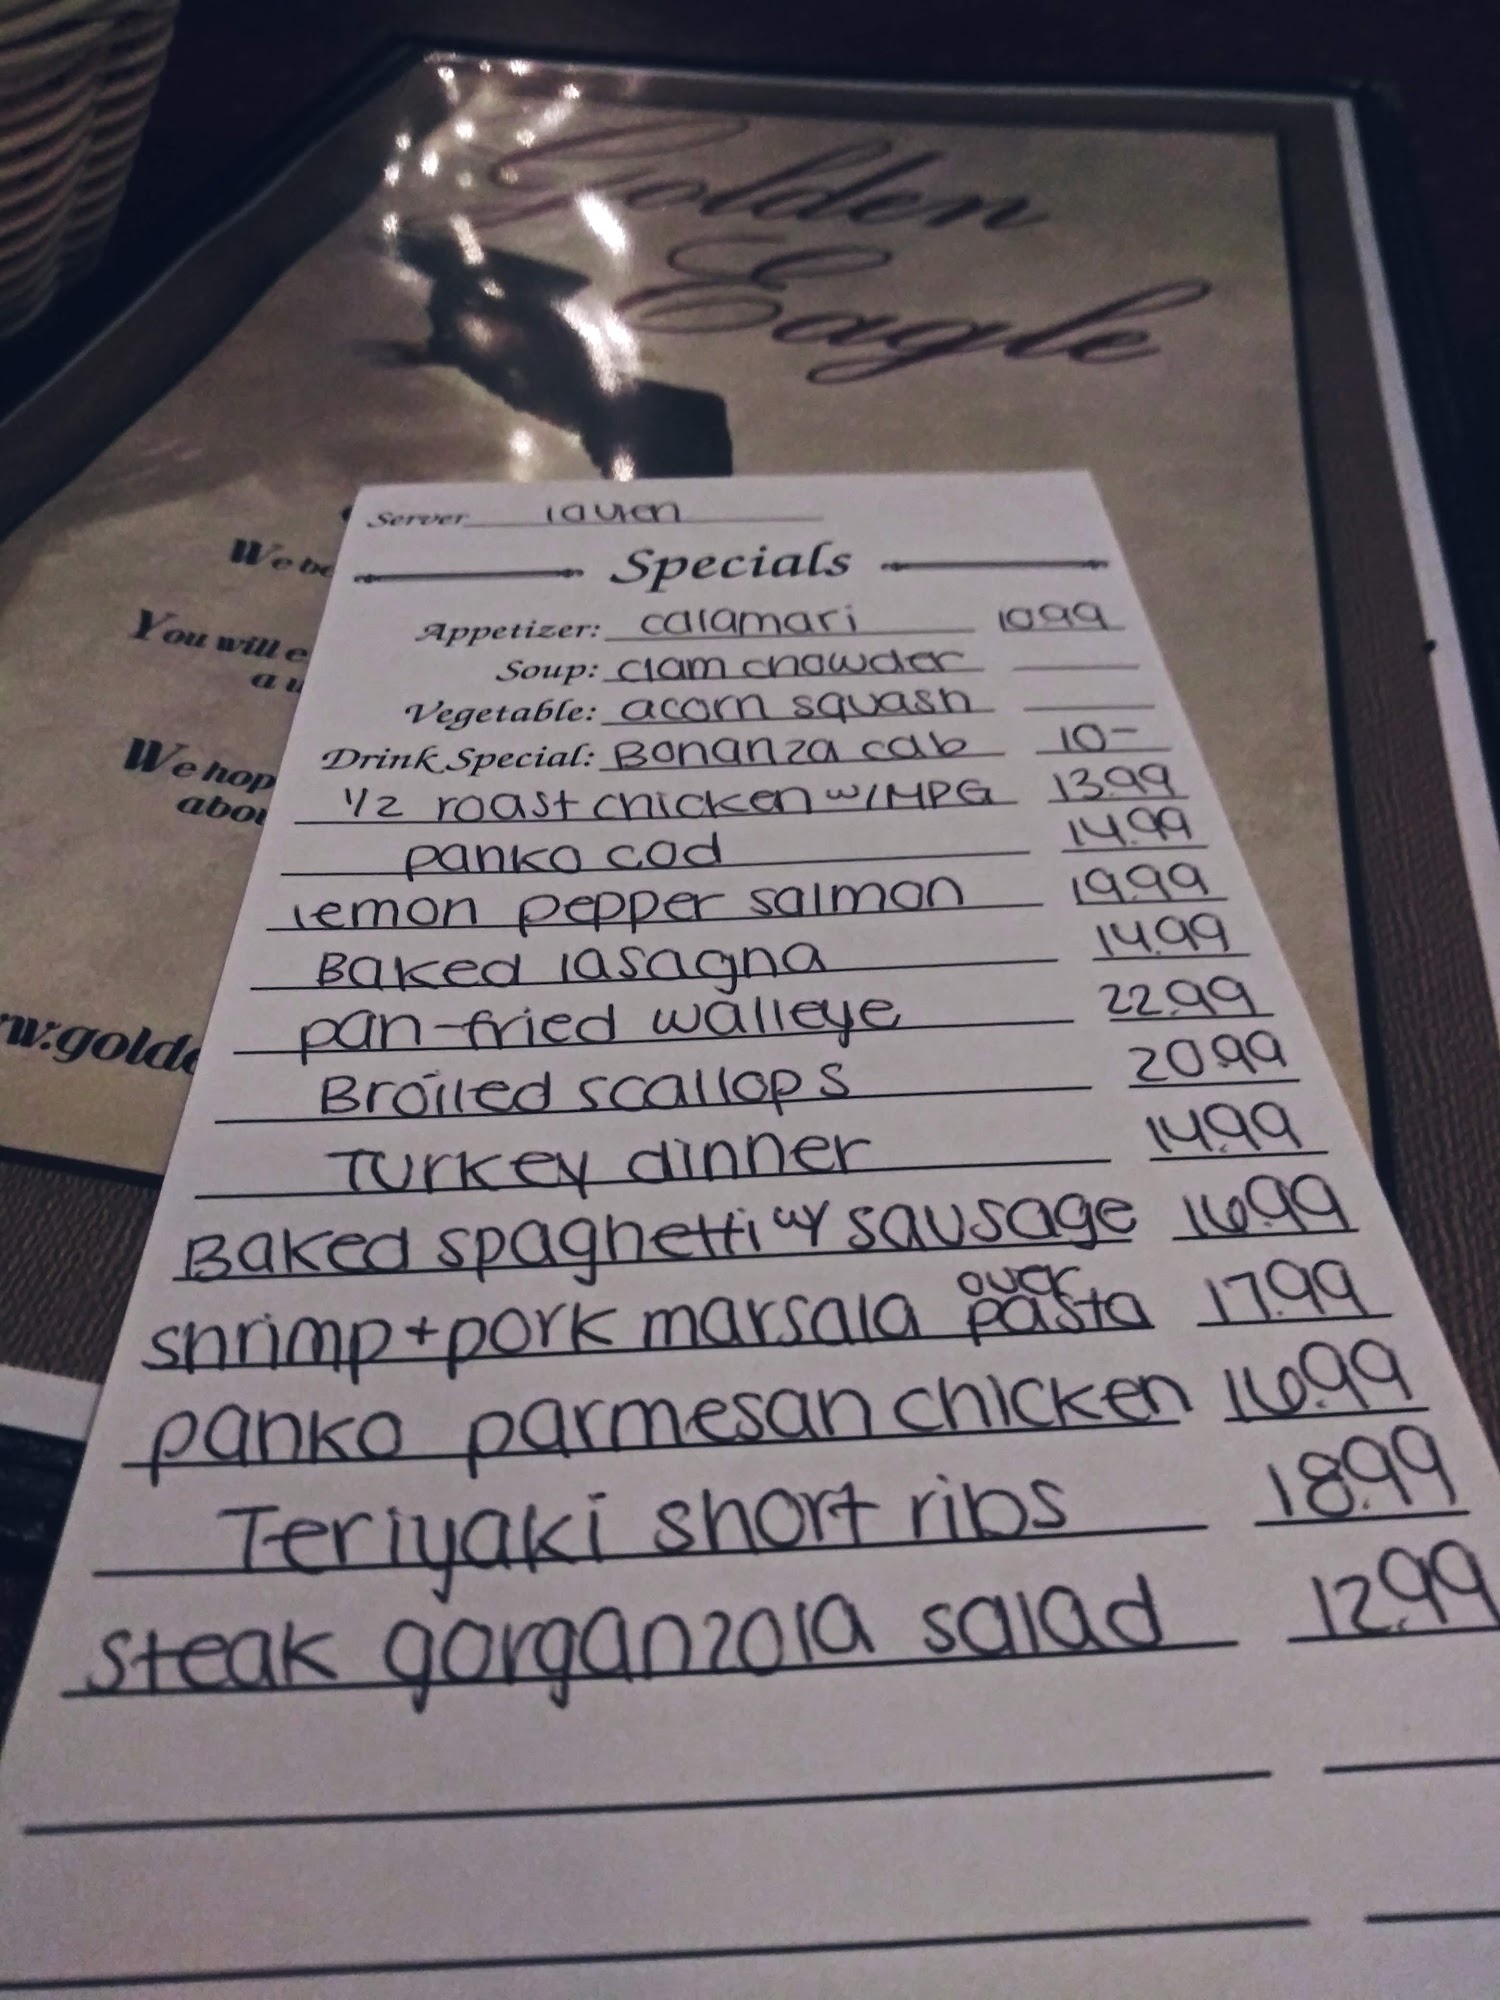 Golden
Eagle
We be
You will e
a u
We hop
abou
w.golde
Server lauren
Specials
Appetizer: calamari 10.99
Soup: clam chowder
Vegetable: acorn squash
Drink Special: Bonanza cab 10-
1/2 roast chicken w/MPG 13.99
panko cod 14.99
lemon pepper salmon 19.99
Baked lasagna 14.99
pan-fried walleye 22.99
Broiled scallops 20.99
Turkey dinner 14.99
Baked spaghetti w/ sausage 16.99
shrimp + pork marsala over pasta 17.99
panko parmesan chicken 16.99
Teriyaki short ribs 18.99
steak gorganzola salad 12.99